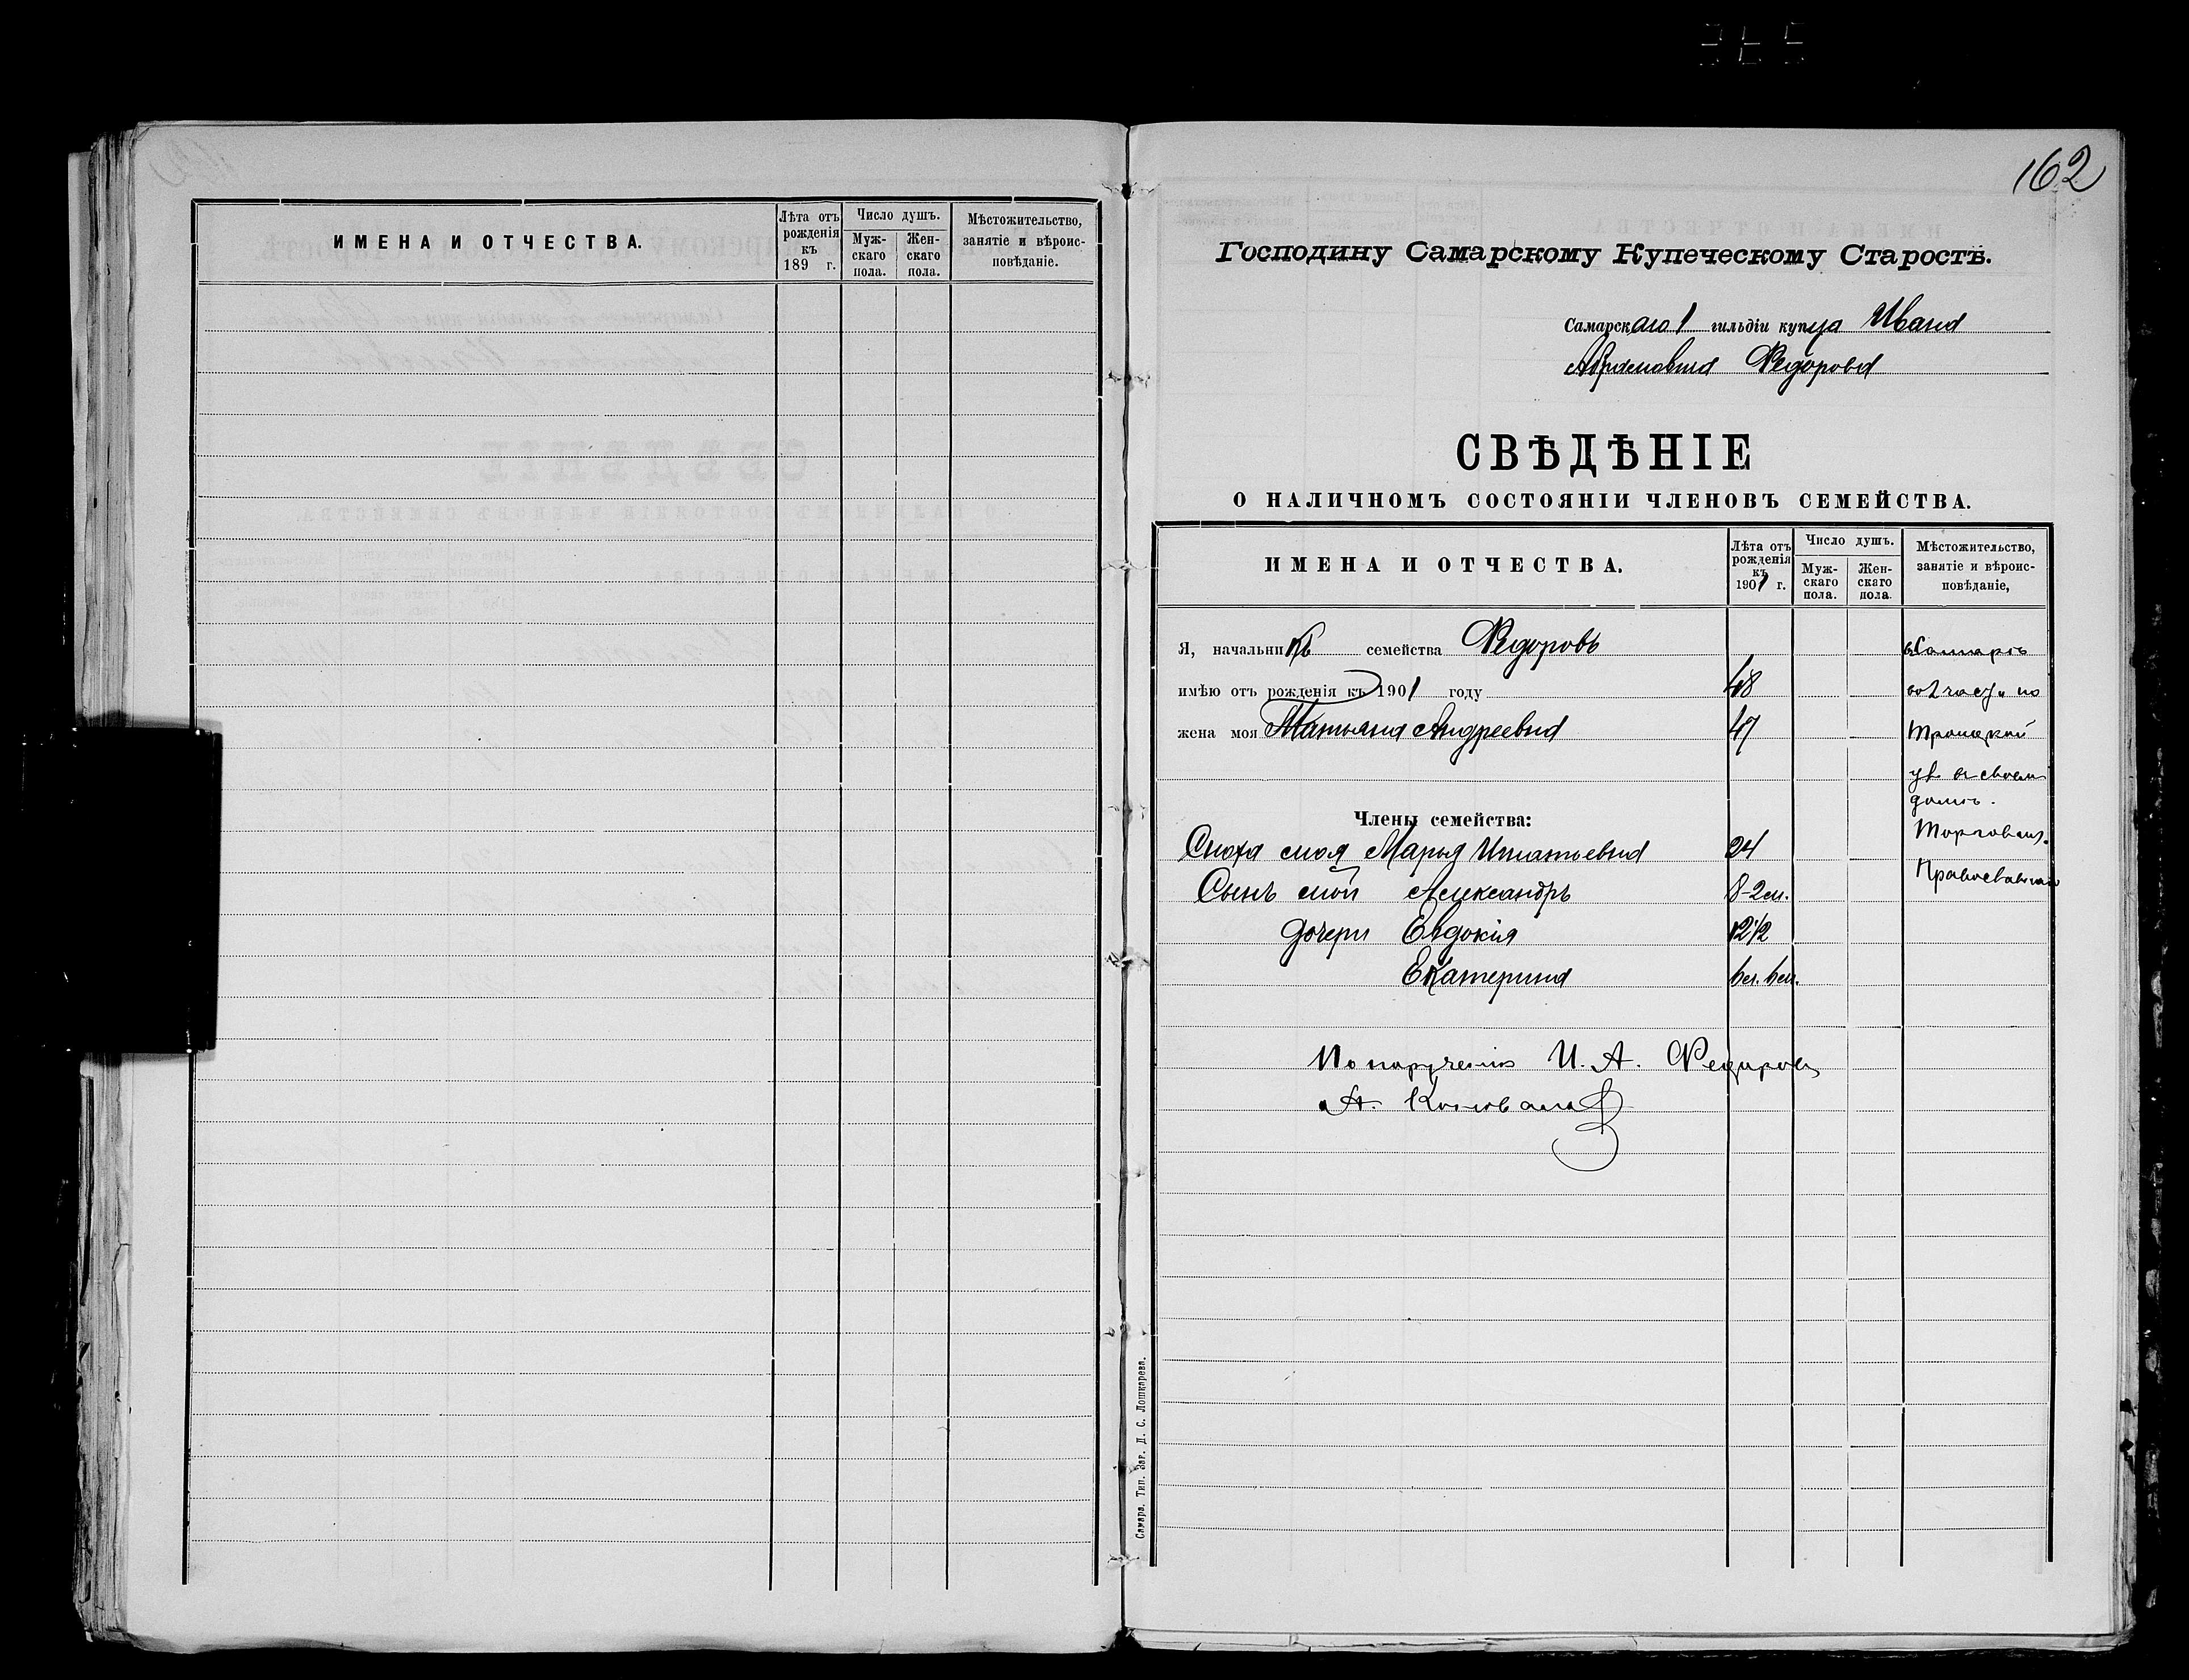 ИМЕНА И ОТЧЕСТВА.
Лѣта отъ рожденія къ 189 г.
Число душъ.
Муж-
скаго
пола.
Жен-
скаго
пола.
Мѣстожительство,
занятіе и вѣроис-
повѣданіе.
162
Господину Самарскому Купеческому Старостѣ.
Самарскаго 1 гильдіи купца Ивана
Абрамовича Федорова
СВѢДѢНІЕ
О НАЛИЧНОМЪ СОСТОЯНІИ ЧЛЕНОВЪ СЕМЕЙСТВА.
ИМЕНА И ОТЧЕСТВА.
Лѣта отъ рожденія къ 1901 г.
Число душъ.
Муж-
скаго
пола.
Жен-
скаго
пола.
Мѣстожительство,
занятіе и вѣроис-
повѣданіе,
Я, начальникъ семейства Федоровъ въ Самарѣ
имѣю отъ рожденія къ 1901 году 48 по
жена моя Татьяна Андреевна 47 Троицкой
ул. въ своем
домѣ.
Члены семейства:
Торговля.
Сноха моя Марья Игнатьевна 24
Православнаго
Сынъ мой Александръ 8-2 м.
дочери Евдокія 12 1/2
Екатерина 6 л. 6 м.
По порученію И. А. Федорова
А.
Самара. Тип. Заг. Д. С. Лошкарева.